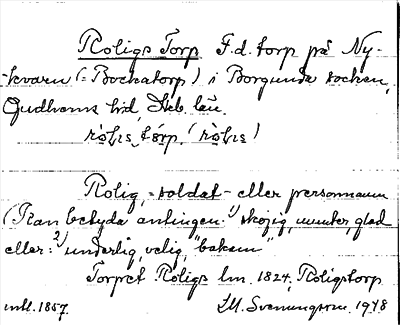 Roligs Torp F.d. torp på Ny-
kvarn (= Bockatorp) i Borgunda socken,
Gudhems hd, Skb. län.
Rolig, = soldat- eller personnamn
(Kan betyda antingen: 1) skojig, munter, glad
eller: 2) underlig, velig, "bakom"
Torpet Roligs lm. 1824, Roligstorp
mtl. 1857. Svenungsson 1978